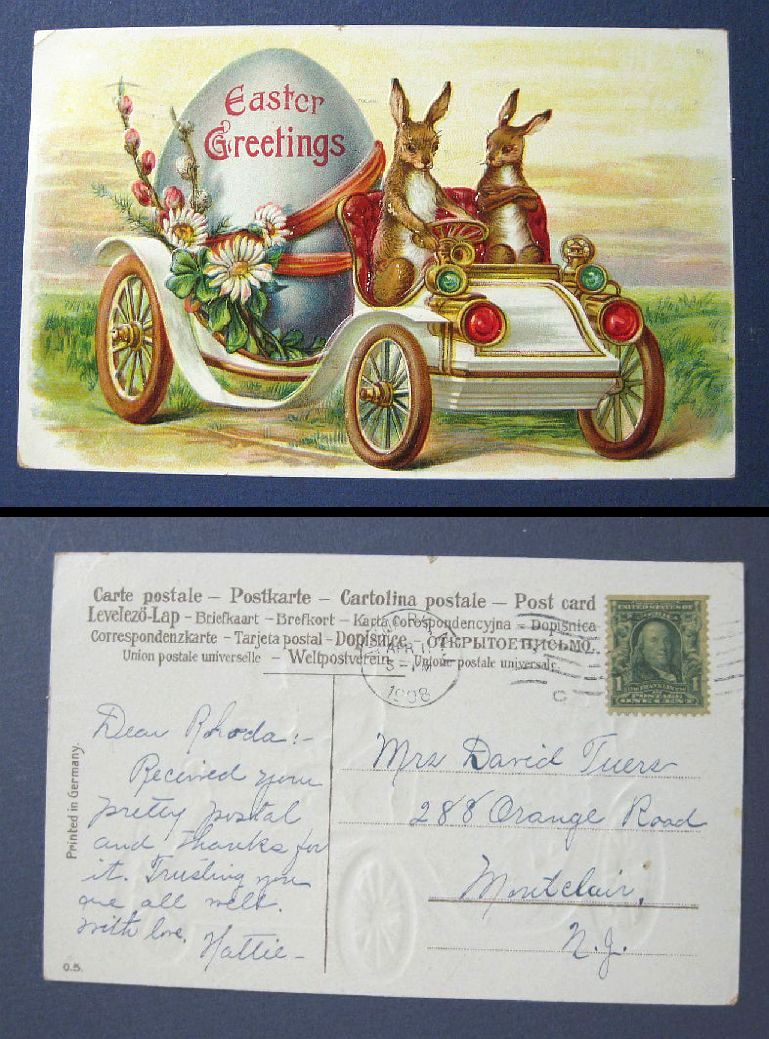 Easter
Greetings
Carte postale – Postkarte – Cartolina postale – Post card
Levelező-Lap – Briefkaart – Brefkort – Karta corespondencyjna – Dopisnica
Correspondenzkarte – Tarjeta postal – Dopisnice – ОТКРЫТОЕ ПИСЬМО.
Union postale universelle – Weltpostverein – Unione postale universale
APR
1908
UNITED STATES OF
1 1
POSTAGE
ONE CENT
Dear Rhoda:-
Received your
pretty postal
and thanks for
it. Trusting you
are all well.
With love, Hattie –
Mrs David Tuers
288 Orange Road
Montclair,
N.J.
Printed in Germany.
O.S.